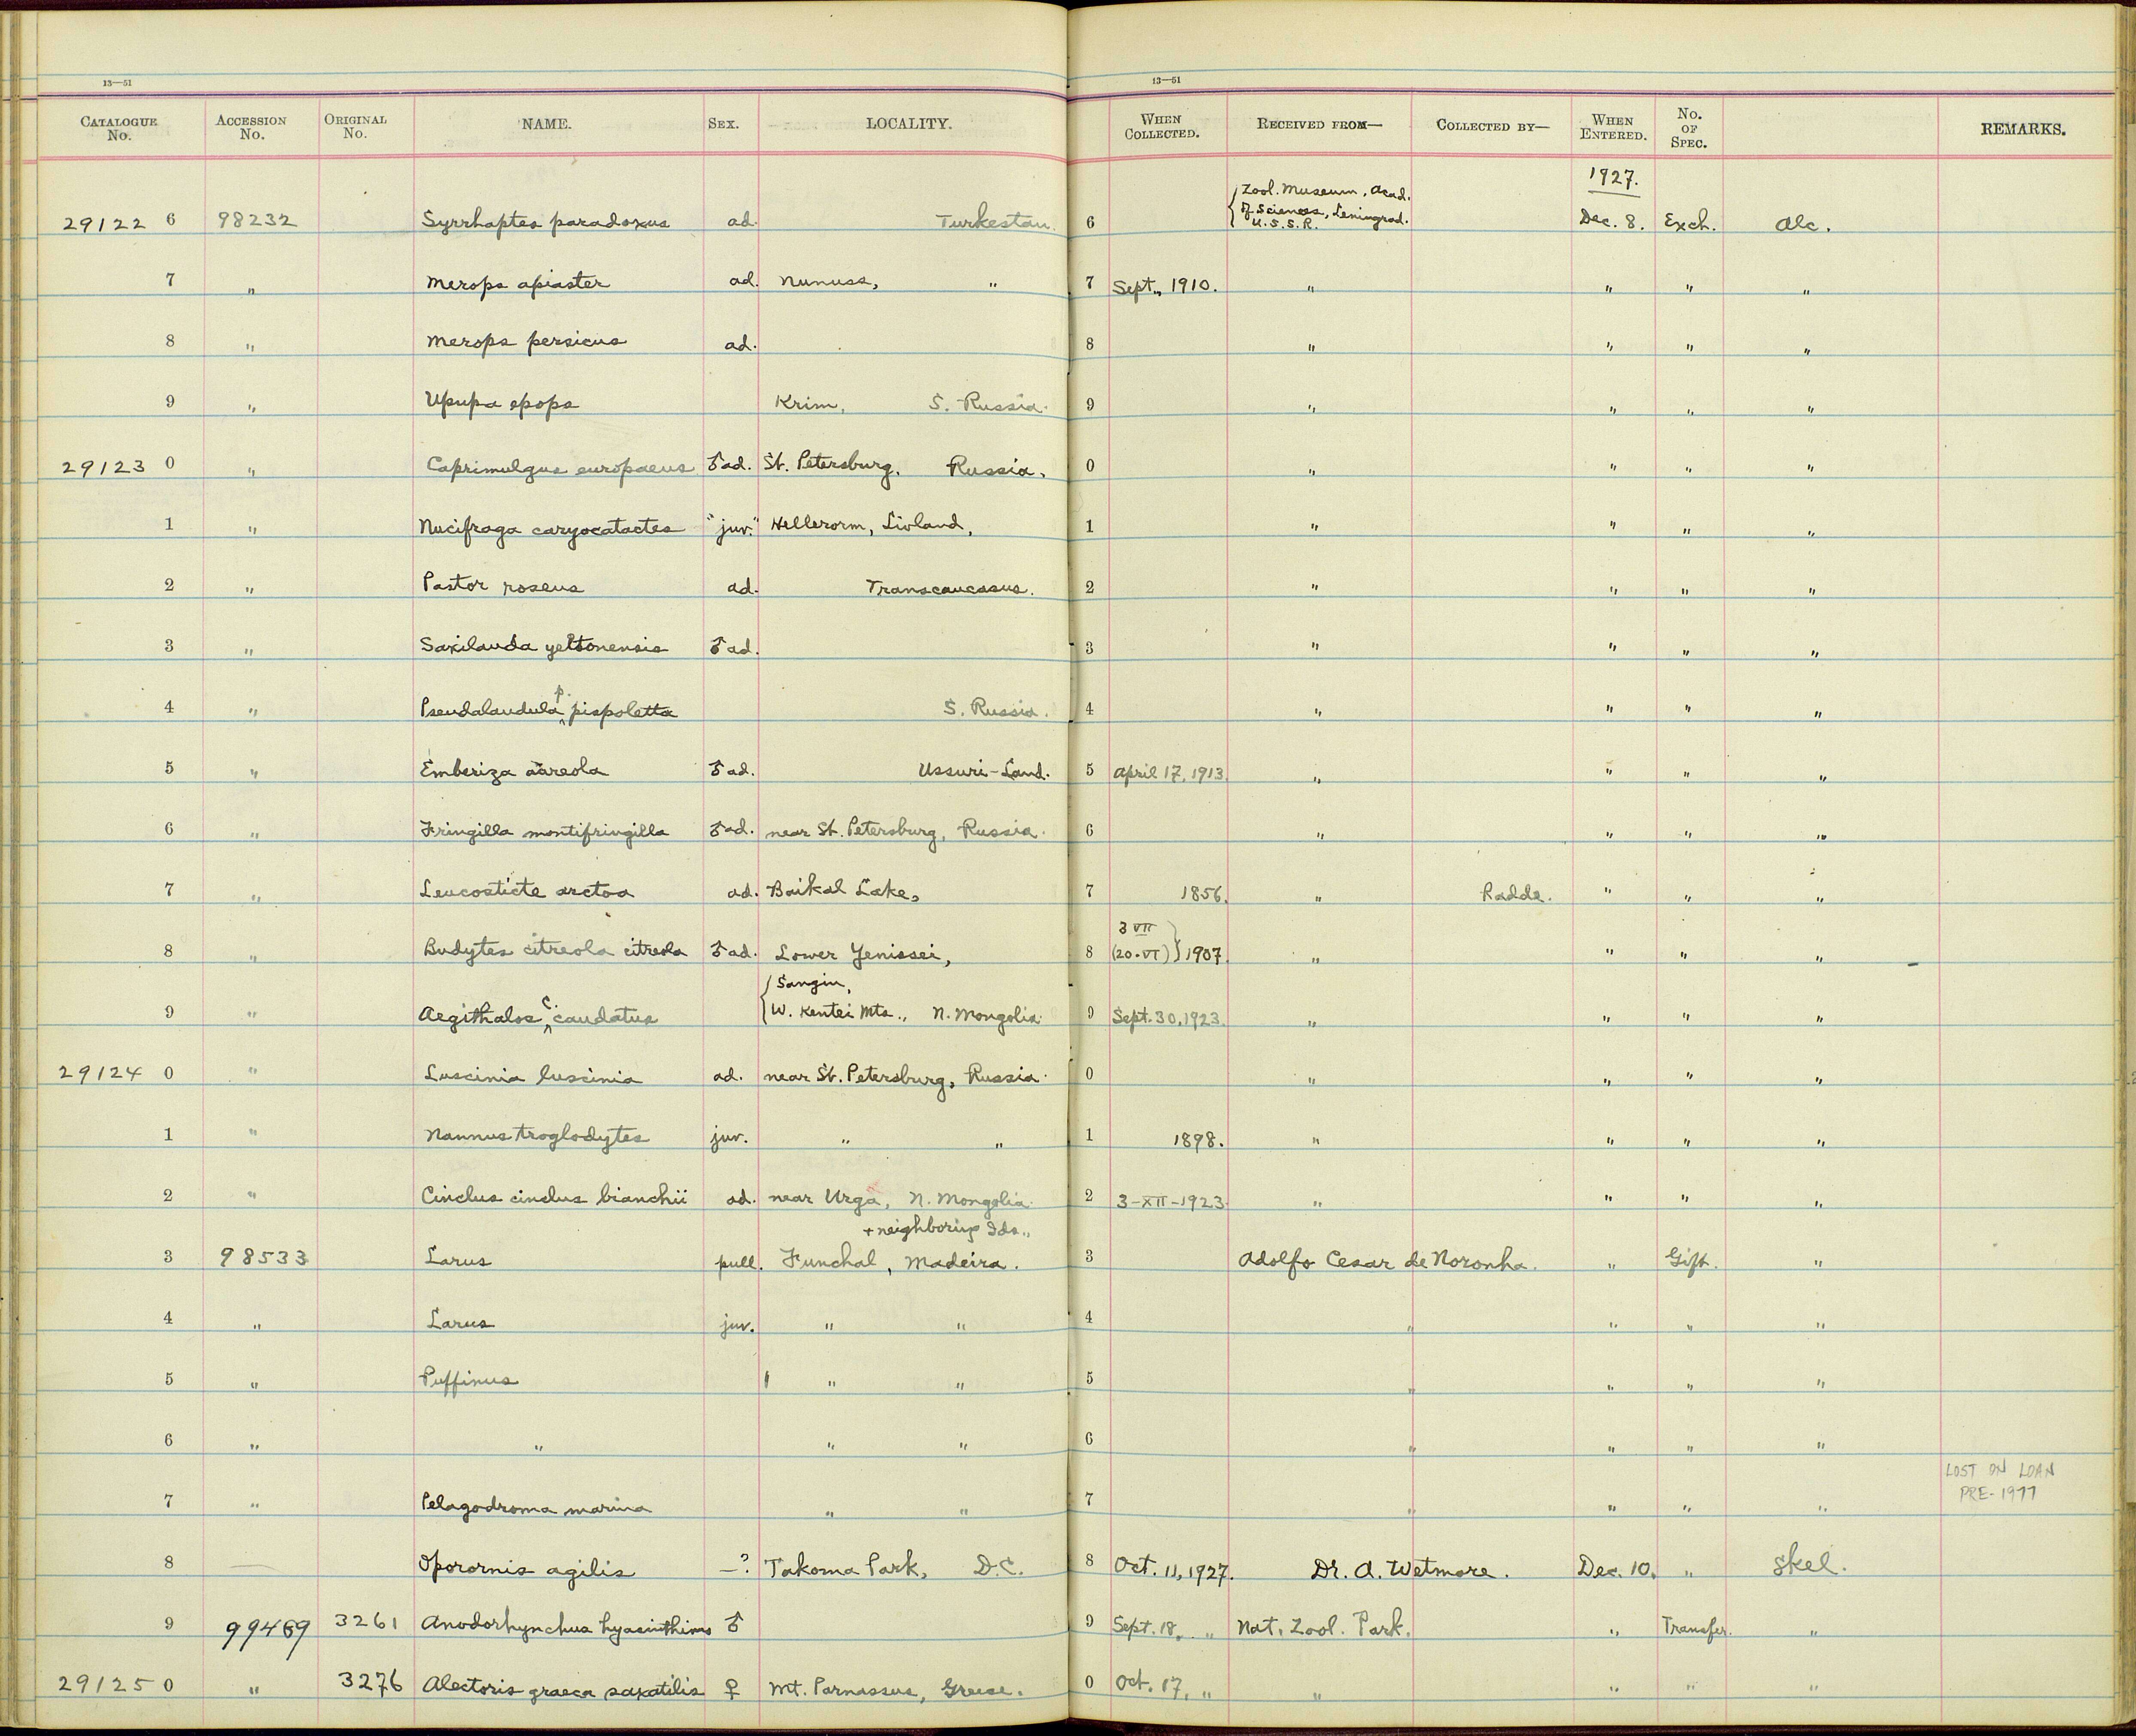 13—51
13—51
CATALOGUE No. ACCESSION No. ORIGINAL No. NAME. SEX. LOCALITY. WHEN COLLECTED. RECEIVED FROM— COLLECTED BY— WHEN ENTERED. No. OF SPEC. REMARKS.
29122 6 98232 Syrrhaptes paradoxus ad. Turkestan. 6 {Zool. Museum, Acad. of Sciences, Leningrad. U.S.S.R. 1927. Dec. 8. Exch. Alc.
7 " Merops apiaster ad. Nunuss, " 7 Sept., 1910. " " " "
8 " Merops persicus ad. 8 " " " "
9 " Upupa epops Krim, S. Russia. 9 " " " "
29123 0 " Caprimulgus europaeus ♂ ad. St. Petersburg, Russia. 0 " " " "
1 " Nucifraga caryocatactes "juv." Hellerorm, Livland, 1 " " " "
2 " Pastor roseus ad. Transcaucasus. 2 " " " "
3 " Saxilauda yeltonensis ♂ ad. 3 " " " "
4 " Pseudalaudula p. pispoletta S. Russia. 4 " " " "
5 " Emberiza aureola ♂ ad. Ussuri-Land. 5 April 17, 1913. " " " "
6 " Fringilla montifringilla ♂ ad. near St. Petersburg, Russia. 6 " " " "
7 " Leucosticte arctoa ad. Baikal Lake, 7 1856. " Radde. " " "
8 " Budytes citreola citreola ♂ ad. Lower Yenissei, 8 3 VII (20·VI)} 1907. " " " "
9 " Aegithalos c. caudatus {Sangin, W. Kentei Mts., N. Mongolia. 9 Sept. 30, 1923. " " " "
29124 0 " Luscinia luscinia ad. near St. Petersburg, Russia. 0 " " " "
1 " Nannus troglodytes juv. " " 1 1898. " " " "
2 " Cinclus cinclus bianchii ad. near Urga, N. Mongolia. 2 3-XII-1923. " " " "
+ neighboring Ids.,
3 98533 Larus pull. Funchal, Madeira. 3 Adolfo Cesar de Noronha. " Gift. "
4 " Larus juv. " " 4 " " " "
5 " Puffinus " " 5 " " " "
6 " " " " 6 " " " "
7 " Pelagodroma marina " " 7 " " " " LOST ON LOAN PRE-1977
8 — Oporornis agilis —? Takoma Park, D.C. 8 Oct. 11, 1927. Dr. A. Wetmore. Dec. 10. " Skel.
9 99469 3261 Anodorhynchus hyacinthinus ♂ 9 Sept. 18, " Nat. Zool. Park. " Transfer. "
29125 0 " 3276 Alectoris graeca saxatilis ♀ Mt. Parnassus, Greece. 0 Oct. 17, " " " " "